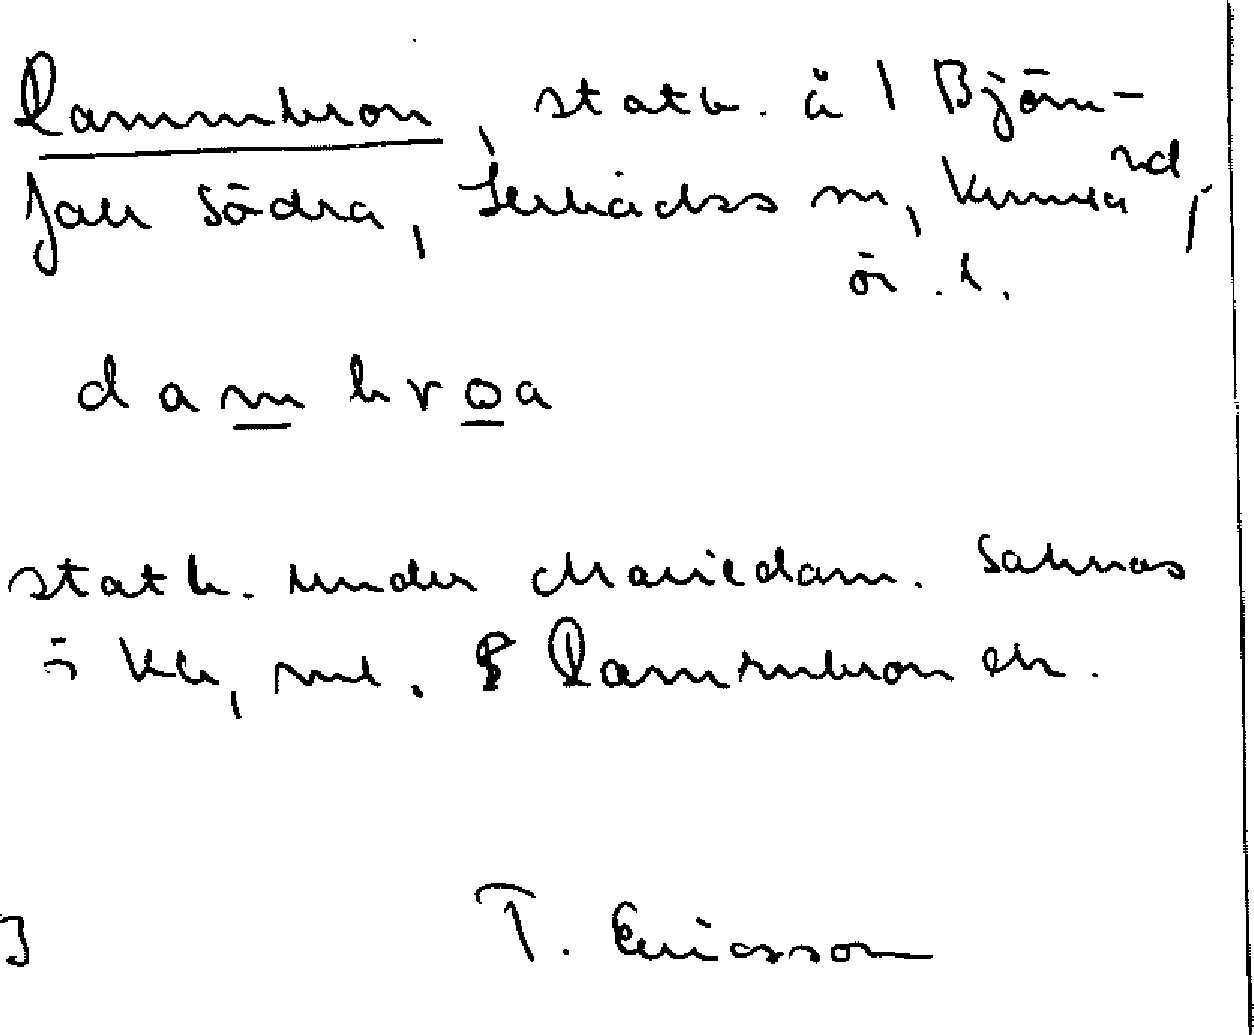 Dammbron, statb. å 1 Björn-
fall södra, Lerbäcks sn, Kumla hd,
ör. l.
d a m b r o a
statb. under Mariedam. Saknas
i Kb, ml. Dammbron ek.
T. Ericsson